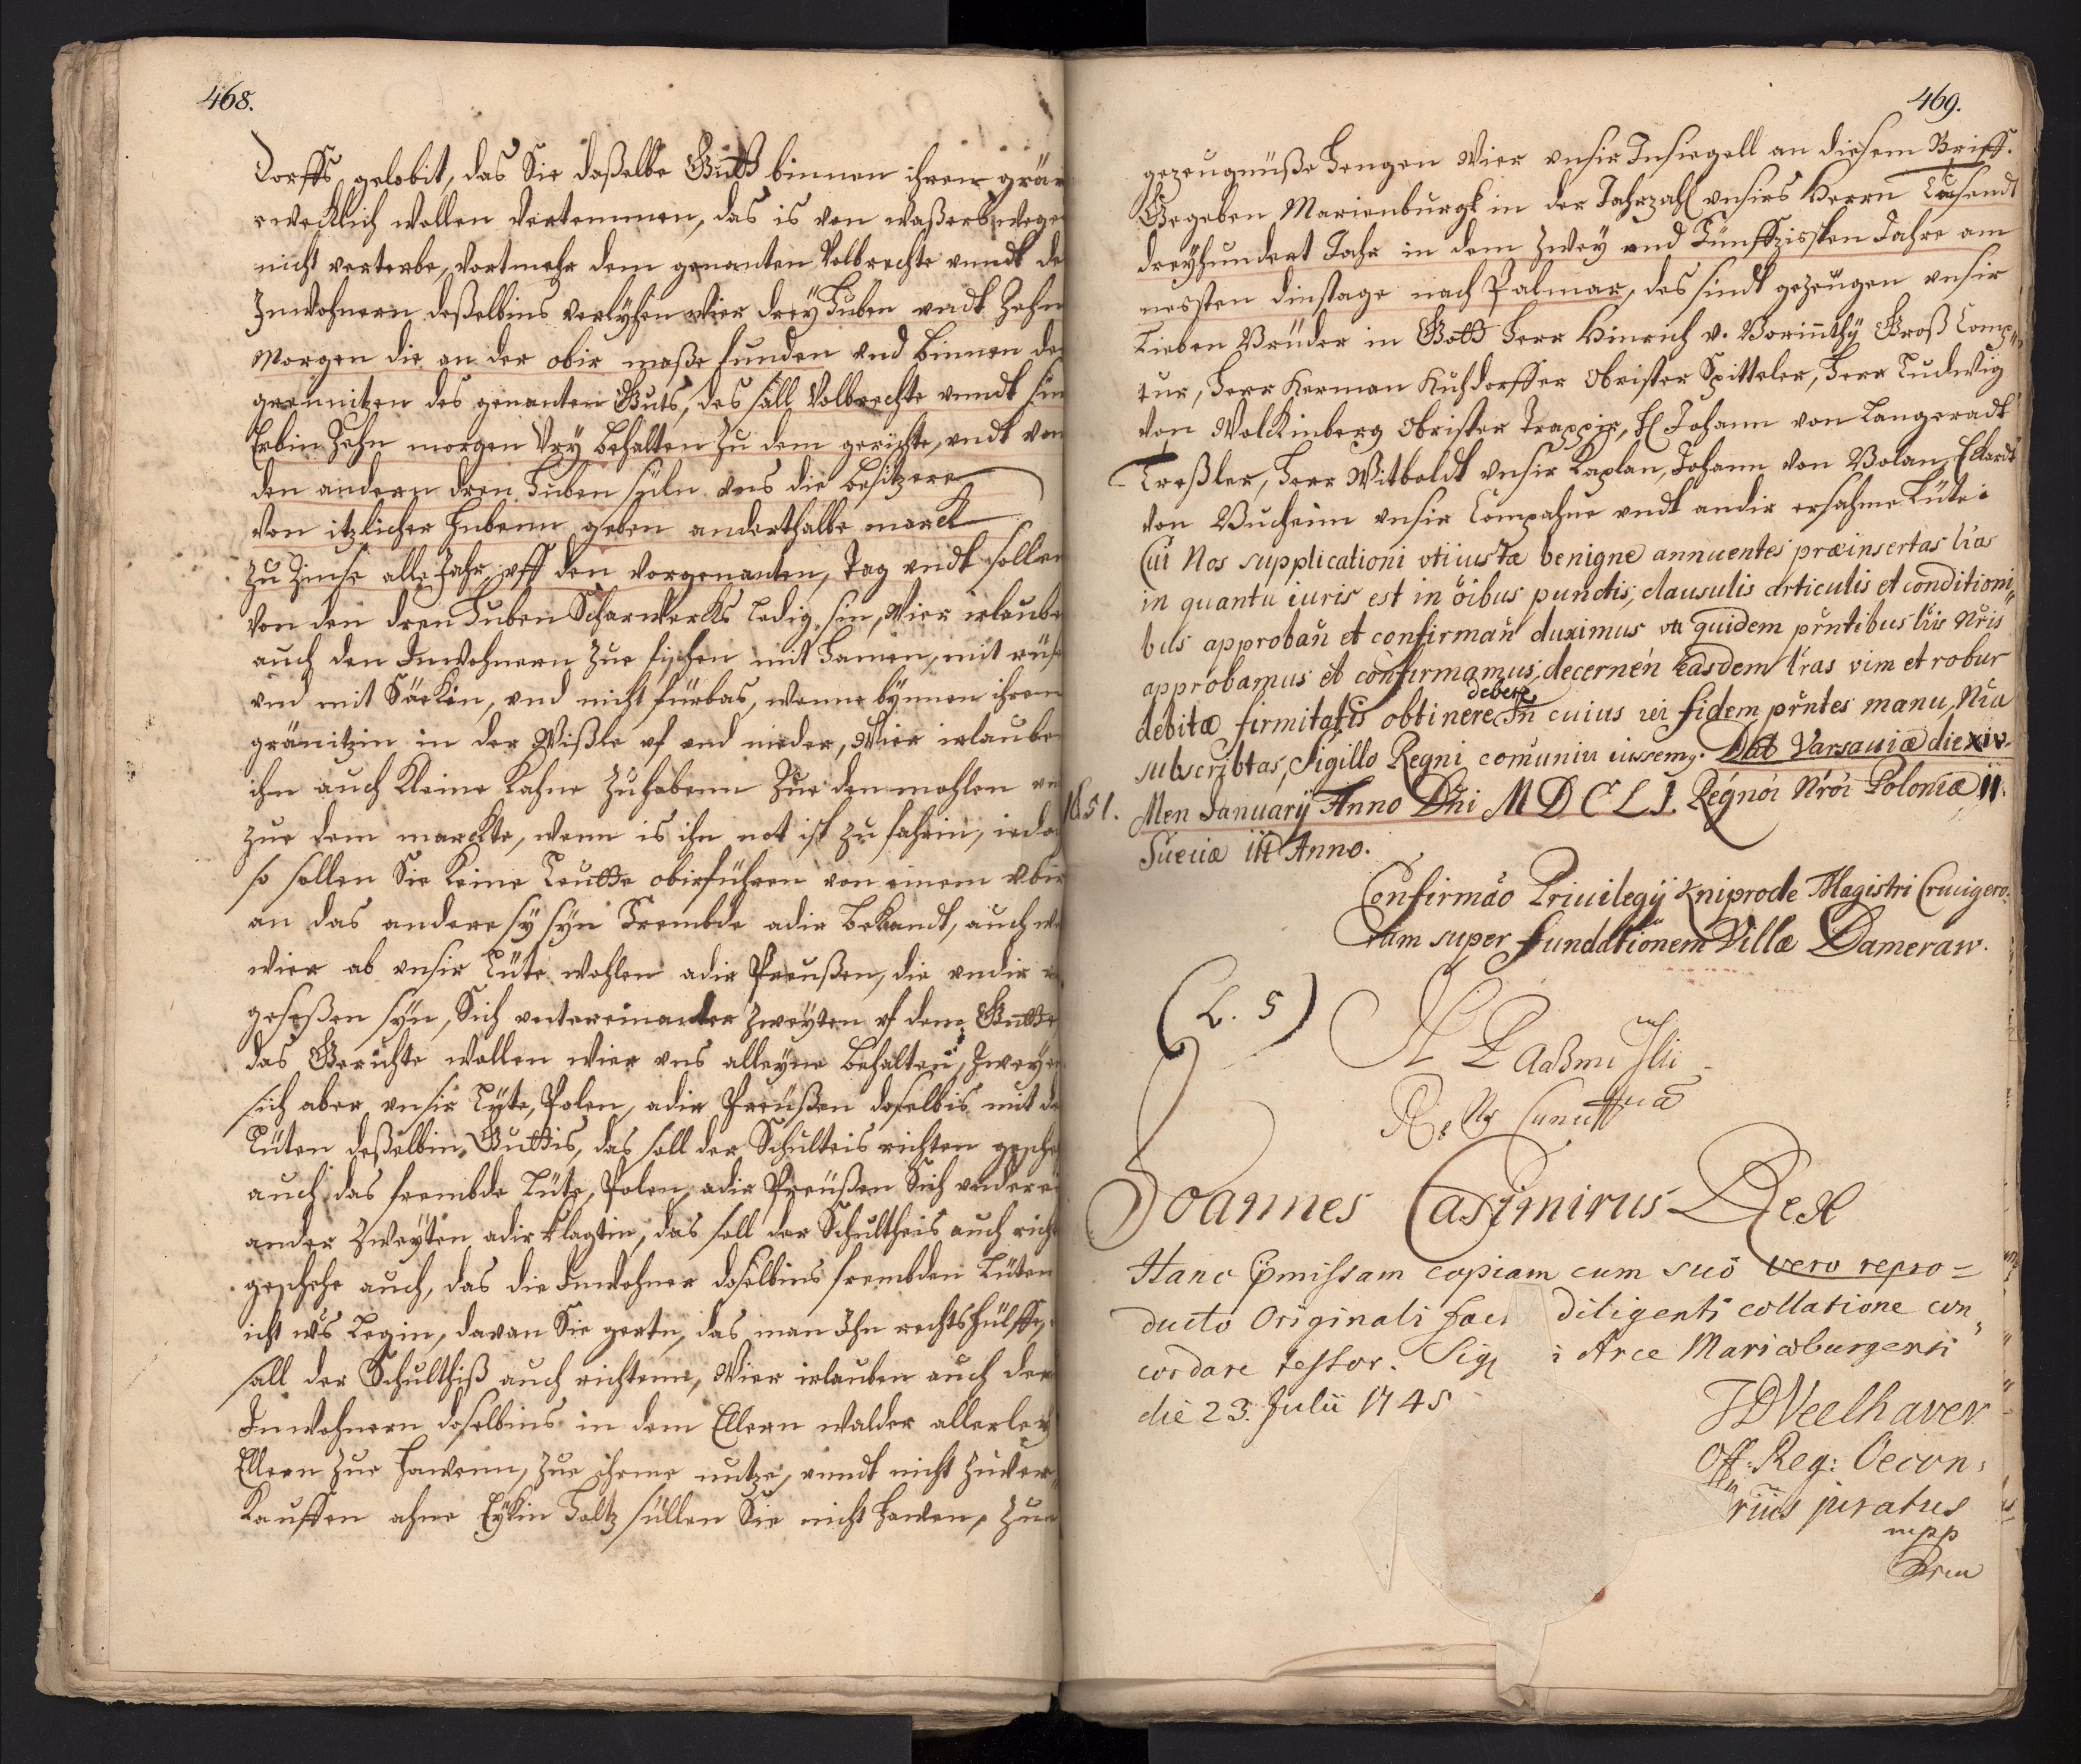 468.
Dorffs gelobit, das Sie daßelbe Gutt binnen ihren grän
ewecklich wollen vertemmen, das is von waßerß wege
nicht verterbe, vortmehr dem genanten Volbrechte vnndt de
Inwohnern deßelbins verlyhen wier drey Huben vndt Zehn
Morgen die an der obir maße funden vnd binnen der
grennitzen des genanten Guts, des sall Volbrechte vnndt sin
Erbin Zehn morgen Vry behalten zu dem gerichte, vndt von
den andern dren Huben süln vns die besitzere
von itzlicher Hubenn geben anderthalbe marck
zu Zinse alle Jahr uff den vorgenanten, Tag vndt sollen
von den dren Huben Scharwercks ledig sin, Wier irlaube
auch den Inwohnern zue fischen mit Hamen, mit rüs
vnd mit Säckin, vnd nicht fürbas, wenne bynnen ihren
gränitzin in der Wißle uf vnd nieder, Wier irlaube
ihn auch Kleine Kahne zuhabenn Zue den mohlen vn
zue dem marckte, wenn is ihn not ist zu fahrin, iedo
so sollen Sie keine Leutte obirführen von einem vbir
an das andere sy syn Frembde adir bekandt, auch w
wier ab vnsir Lüte wohlen adir Preußen, die vndir v
geseßen syn, Sich vntereinander zweyten uf dem Gutte
das Gerichte wollen wier vns alleyne behalten, Zweye
sich aber vnsir Lyte, Polen, adir Preüßen doselbis mit de
Lüten deßelbin Guttis, das soll der Schulteis richten gesche
auch das frembde Lüte, Polen, adir Preüßen Sich vnderei
ander Zweyten adir klagtin, das soll der Schultheis auch rich
geschehe auch, das die Inwohner doselbins frembden Lüten
icht ws legin, davan Sie gertn, das man Ihn rechtshülffe,
sall der Schulthiß auch richtenn, Wier irlauben auch den
Inwohnern doselbins in dem Ellern walder allerley
Ellern zue Hawenn, zue ihrme nutze, vnndt nicht zuver,,
Kauffen ahne Eykin Holtz süllen Sie nicht hawen, zue
469.
gezeugnüße Hengen Wier vnsir Insiegell an diesem Briff.
Gegeben Marienburgk in der Jahrzahl vnsirs Herrn Tusendt
dreyhundert Jahr in dem Zwey vnd Fünffzissten Jahre am
nessten dinstage nach Palmar, des sindt gezeügen vnsir
Lieben Brüder in Gott Herr Hinrich v. Borinthy Groß Comp,,
tur, Herr Herman Kuhdorffer Obrister Spitteler, Herr Ludwig
von Wolckinberg Obrister Trappir, H Johann von Langeradt
Treßler, Herr Witboldt vnsir Kaplan, Johann von Bolan, Eckardt
von Bucheim vnsir Compahne vndt andir ersahme Lüte:
Cui Nos supplicationi uti iustæ benigne annuentes præinsertas lras
in quantu iuris est in oibus punctis, clausulis articulis et conditioni,,
bus approban et confirman duximus uti quidem prntibus lris Nris
approbamus et confirmamus, decernen easdem lras vim et robur
debitæ firmitatis obtinere debere In cuius rei fidem prntes manu Nra
subscribtas, Sigillo Regni comuniri iussimq. Dat Varsaviæ die xiv.
1651. Men January Anno Dni M D C L I. Regnor Nror Poloniæ II.
Sueciæ III Anno.
Confirmao Privilegij Kniprode Magistri Crucigero,,
rum super fundationem Villæ Damerau.
(L. S)
Joannes Casimirus Rex
Hanc præmissam copiam cum suo vero repro=
ducto Originali diligenti collatione con,,
cordare testor. Arce Mariæburgensi
die 23. Julii 1745
Off. Reg: Oecon:
rius juratus
mpp